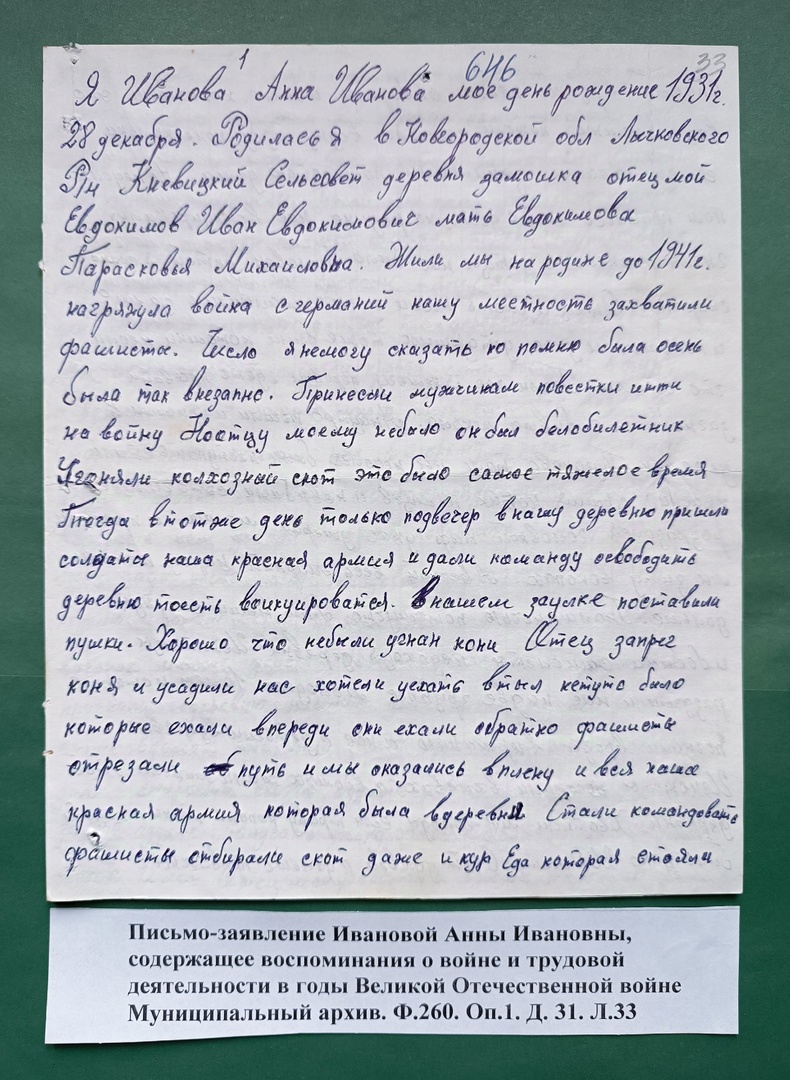 1 646 33
Я Иванова Анна Иванова мое день рождение 1931г.
28 декабря. Родилась я в Новгородской обл Лычковского
Р/н Кневицкий Сельсовет деревня дамошка отец мой
Евдокимов Иван Евдокимович мать Евдокимова
Парасковья Михаиловна. Жили мы народине до 1941г.
нагрянула война с германий нашу местность захватили
фашисты. Число я немогу сказать но помню была осень
была так внезапно. Принесли мужчинам повестки итти
на войну Ноотцу моему небыло он был белобилетник
Угоняли колхозный скот это было самое тяжелое время
Тпогда втотже день только подвечер внашу деревню пришли
солдаты наша красная армия и дали команду освободить
деревню тоесть воикуироватся. Внашем заулке поставили
пушки. Хорошо что небыли угнан кони Отец запрег
коня и усадили нас хотели уехать втыл нетуто было
которые ехали впереди они ехали обратно фашисты
отрезали путь имы оказались вплену и вся наша
красная армия которая была вдеревни Стали командовать
фашисты отбирали скот даже и кур Еда которая стояла
Письмо-заявление Ивановой Анны Ивановны,
содержащее воспоминания о войне и трудовой
деятельности в годы Великой Отечественной войне
Муниципальный архив. Ф.260. Оп.1. Д. 31. Л.33